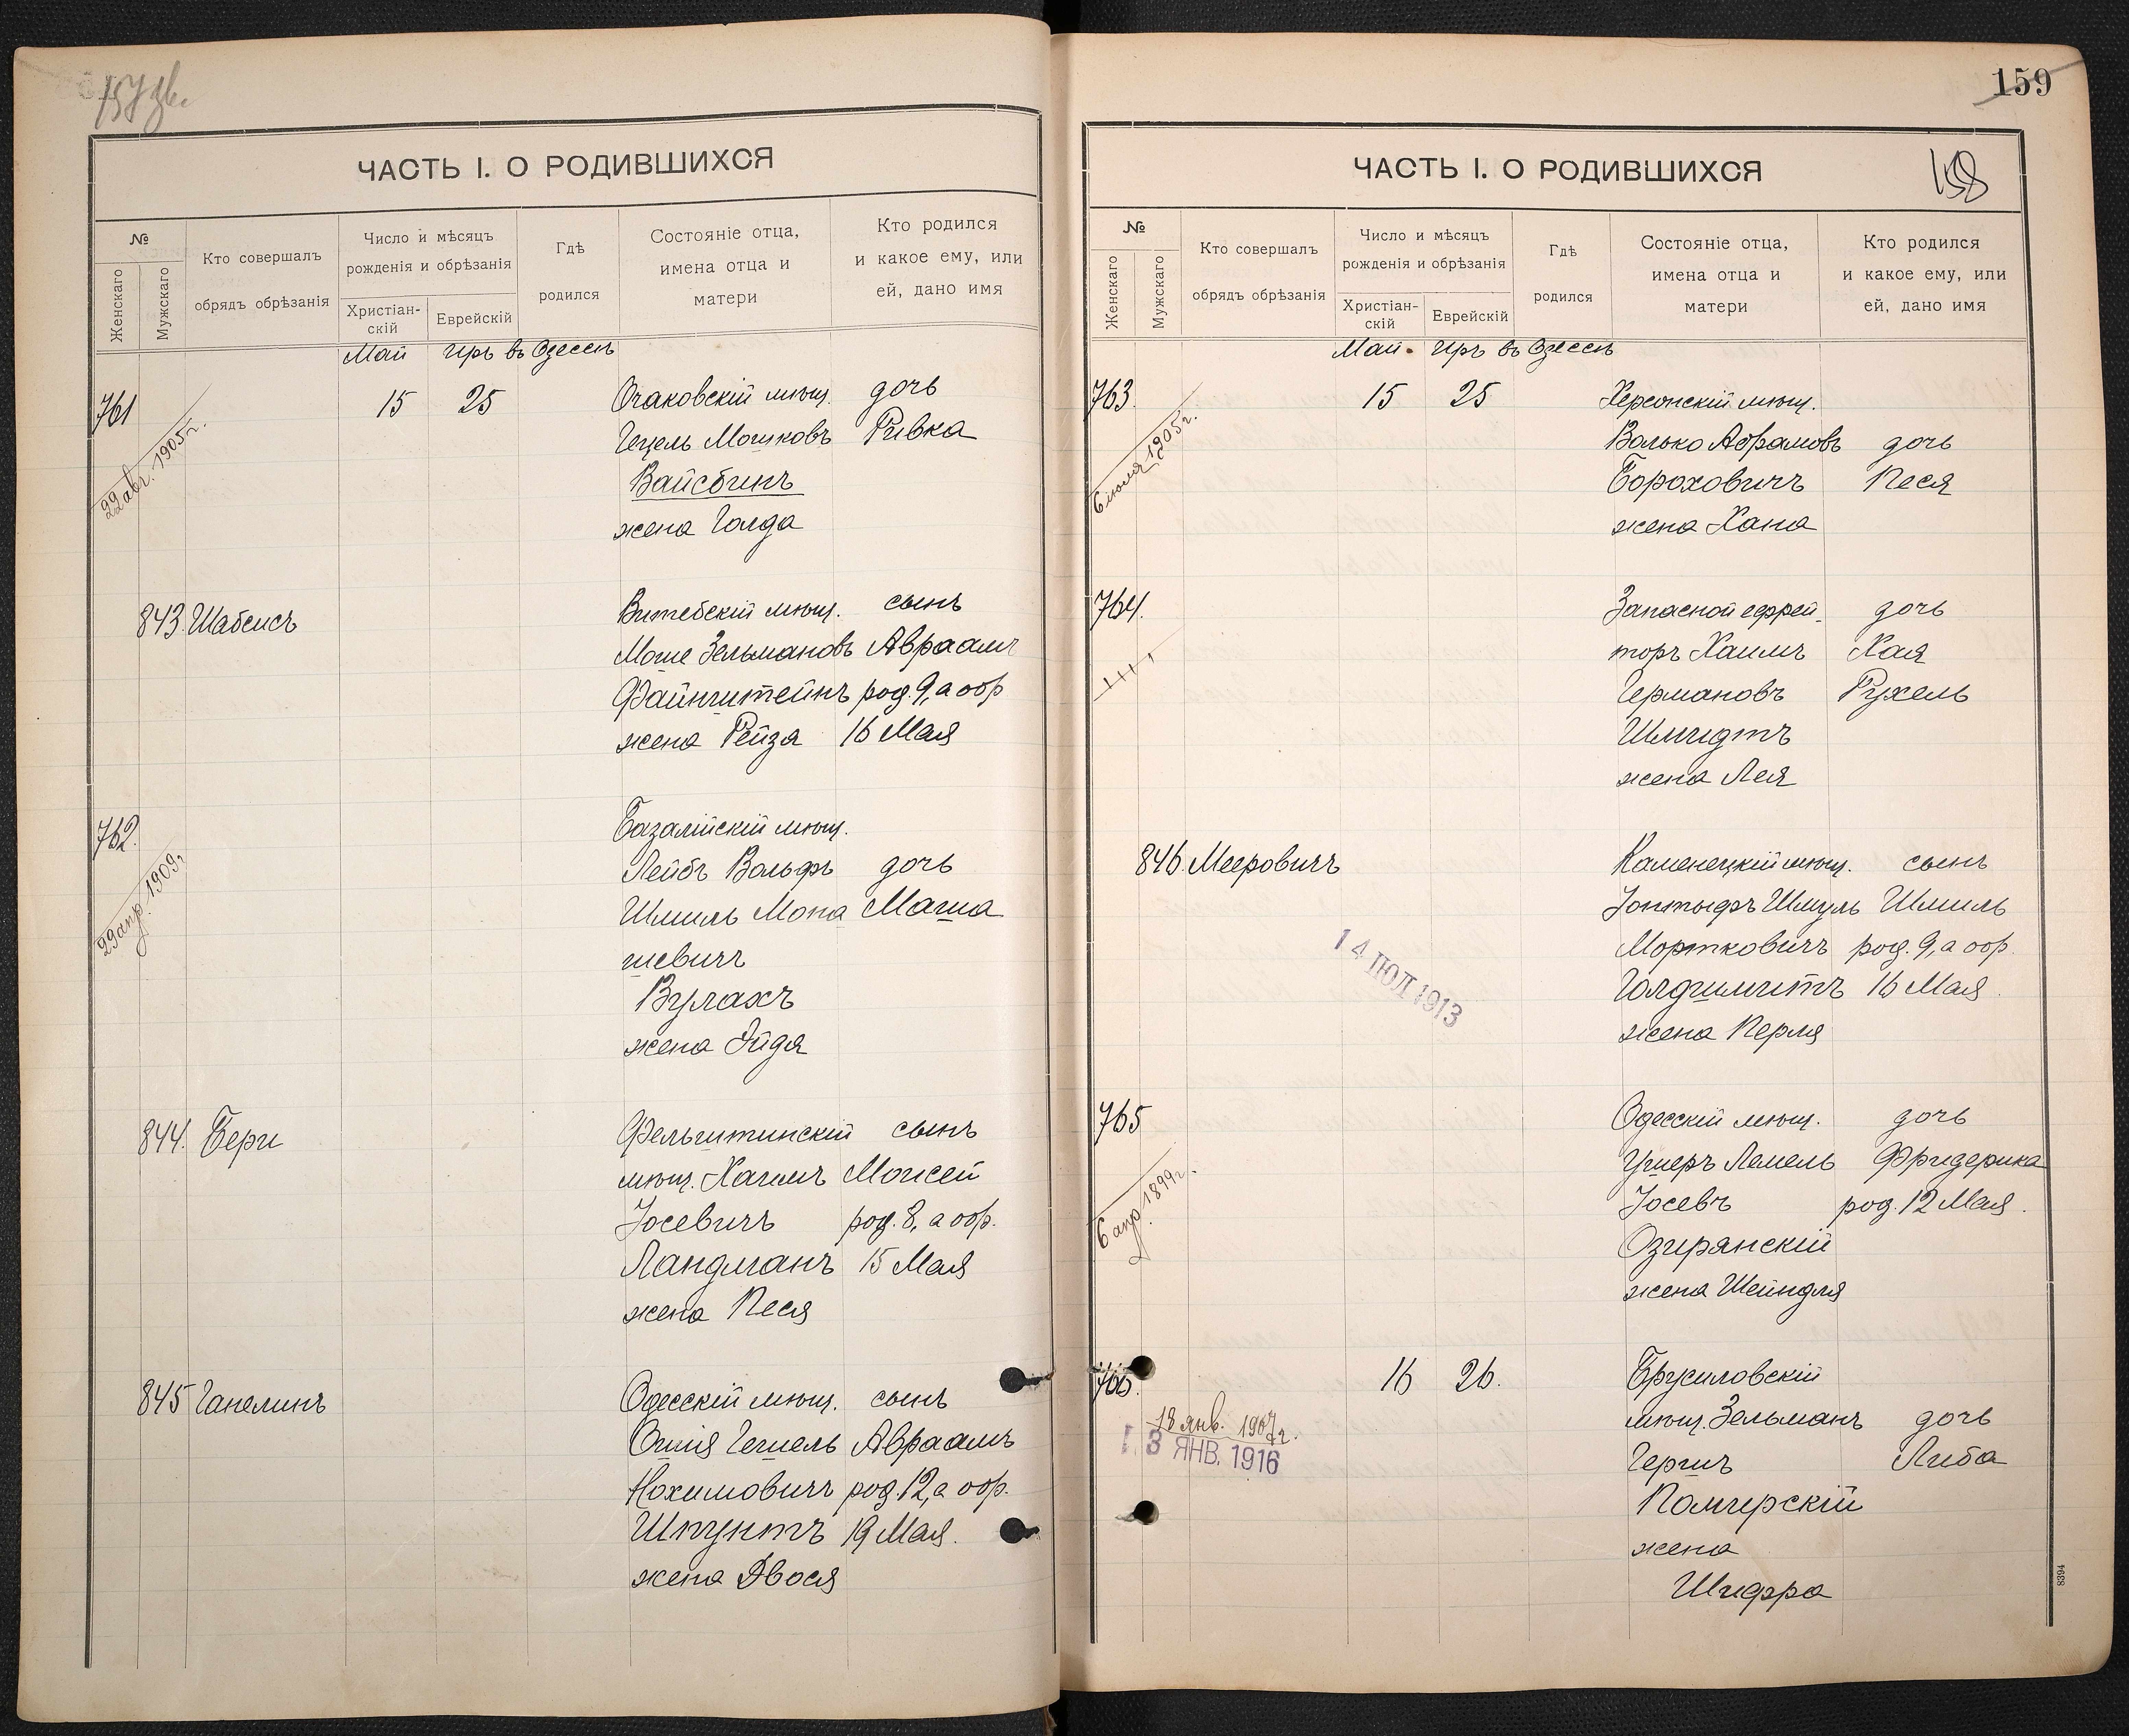 ЧАСТЬ I. О РОДИВШИХСЯ
№
Женскаго
Мужскаго
Кто совершалъ
обрядъ обрѣзанія
Число и мѣсяцъ
рожденія и обрѣзанія
Христіан-
скій
Еврейскій
Гдѣ
родился
Состояніе отца,
имена отца и
матери
Кто родился
и какое ему, или
ей, дано имя
Май Иръ въ Одессѣ
761 15 25 Очаковскій мѣщ. дочь
Гецель Мошковъ Ривка
22 авг. 1905 г.
Вайсбинъ
жена Голда
843. Шабсисъ Витебскій мѣщ. сынъ
Моше Зельмановъ Авраамъ
Файнштейнъ род. 9, а обр
жена Рейза 16 Мая
762. Базалійскій мѣщ.
Лейбъ Вольфъ дочь
29 апр. 1909 г
Шмиль Мона Маша
шевичъ
Вулахъ
жена Эйдя
844. Бери Фельштинскій сынъ
мѣщ. Хаимъ Моисей
Іосевичъ род. 8, а обр.
Ландманъ 15 Мая
жена Песя
845 Ганелинъ Одесскій мѣщ. сынъ
Ошія Гешель Авраамъ
Нохимовичъ род. 12, а обр.
Шпунтъ 19 Мая.
жена Двося
159
158
ЧАСТЬ I. О РОДИВШИХСЯ
№
Женскаго
Мужскаго
Кто совершалъ
обрядъ обрѣзанія
Число и мѣсяцъ
рожденія и обрѣзанія
Христіан-
скій
Еврейскій
Гдѣ
родился
Состояніе отца,
имена отца и
матери
Кто родился
и какое ему, или
ей, дано имя
Май. Иръ въ Одессѣ
763. 15 25 Херсонскій мѣщ.
6 іюля 1905 г.
Волько Абрамовъ дочь
Бороховичъ Песя
жена Хана
764. Запасной ефрей-
дочь
торъ Хаимъ Хая
Германовъ Рухель
Шмидтъ
жена Лея
846. Мееровичъ Каменецкій мѣщ. сынъ
Іонтыфъ Шмуль Шмиль
Мортковичъ род. 9, а обр.
14 ІЮЛ 1913
Голдшмитъ 16 Мая.
жена Перля
765 Одесскій мѣщ. дочь
Ушеръ Лемель Фридерика
6 апр 1899 г.
Іосевъ род. 12 Мая.
Озирянскій
жена Шейндля
766. 16 26. Брусиловскій
18 янв. 1907 г.
мѣщ. Зельманъ дочь
13 ЯНВ. 1916
Гершъ Либа
Помирскій
жена
Шифра
8394